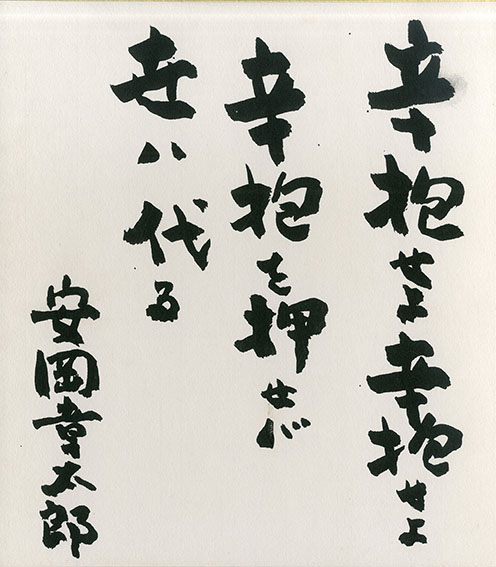 辛抱せよ辛抱せよ
辛抱を押せバ
世ハ代る
安岡章太郎